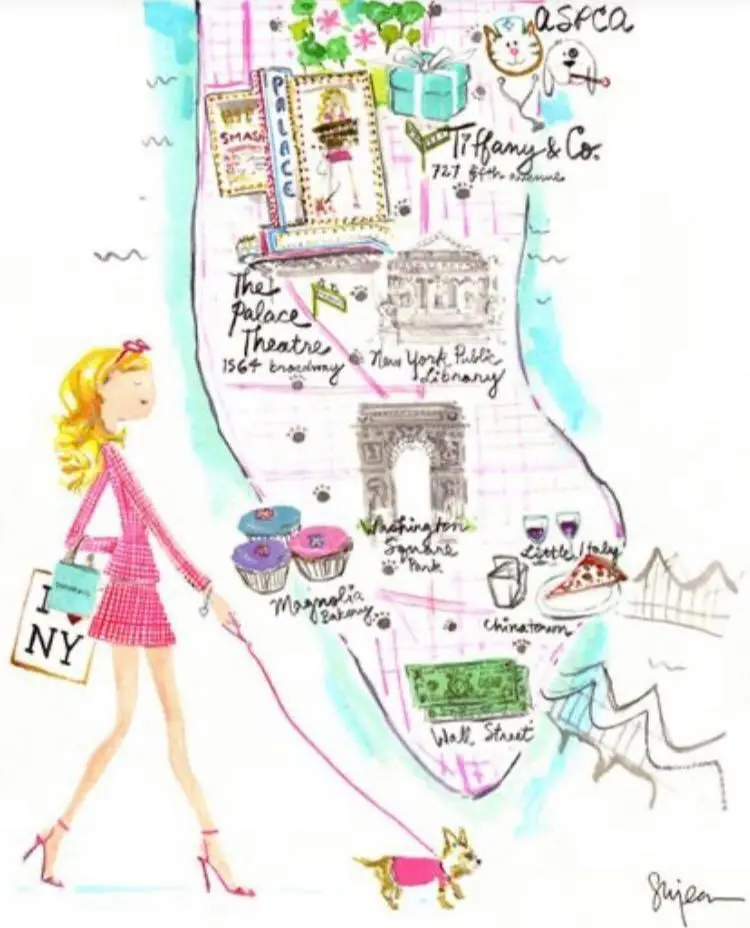 ASPCA
PALACE
SMASH
Tiffany & Co.
727 fifth avenue
The
Palace
Theatre
1564 broadway
New York Public
Library
Washington
Square
Park
Little Italy
Magnolia
Bakery
Chinatown
I
NY
Wall Street